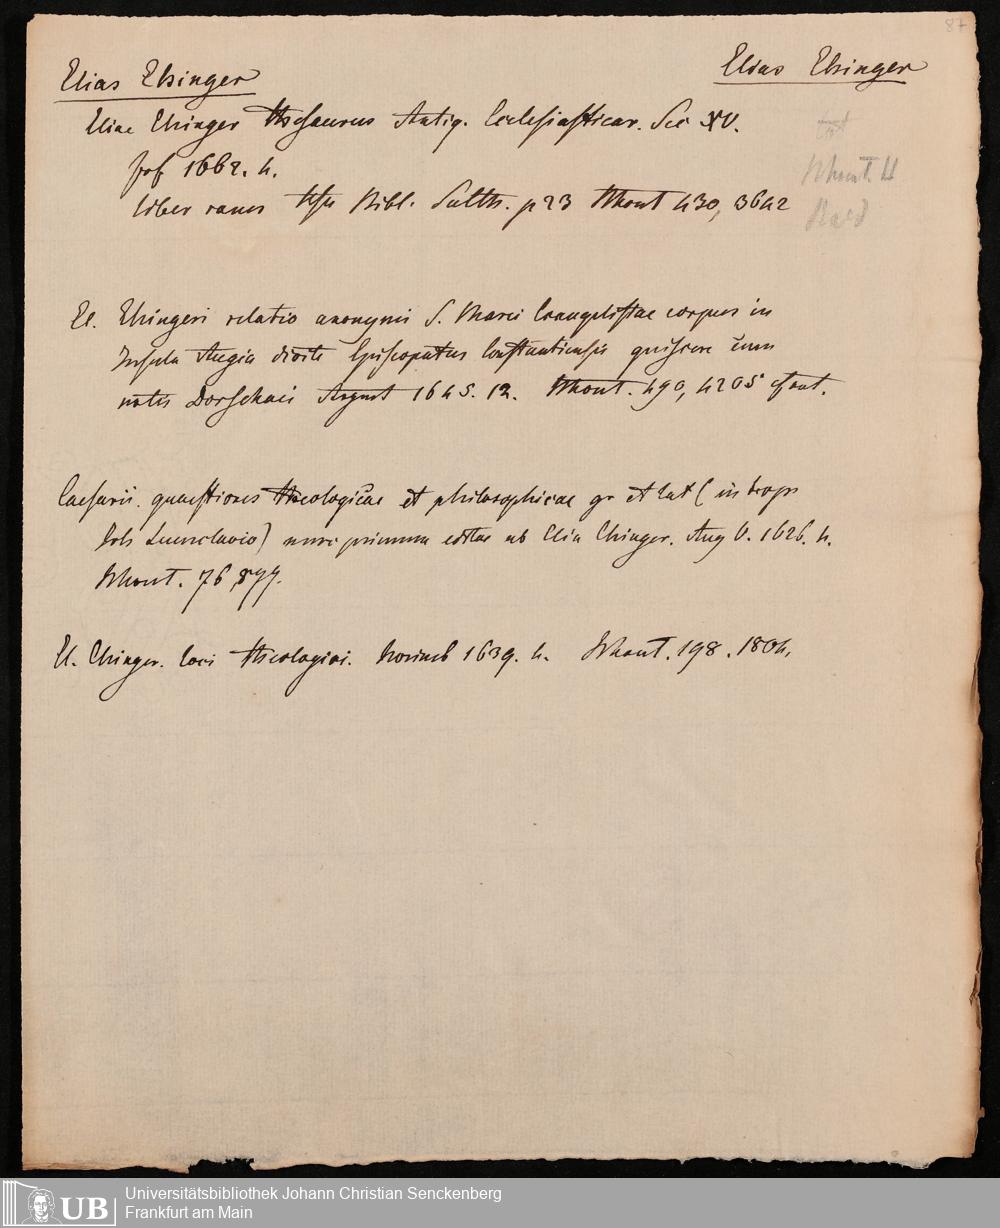 87
Elias Ehinger
Elias Ehinger
Eliae Ehinger Thesaurus Antiq. Ecclesiasticar. Sec XV.
Frf 1662. 4.
liber rarus Bibl. Salth. p 23 430, 3642
El. Ehingeri relatio anonymi S. Marci Evangelistae corpus in
Insula Augia Episcopatus Constantiensis cum
notis Dorschaei August 1645. 12. 490, 4205
Caesarii quaestiones theologicae et philosophicae gr et lat (
Joh Leunclavio) nunc primum editae ab Elia Ehinger. Aug V. 1626. 4.
76, 577.
El. Ehinger. loci theologici. Norimb 1639. 4. 198. 1804.
UB
Universitätsbibliothek Johann Christian Senckenberg
Frankfurt am Main